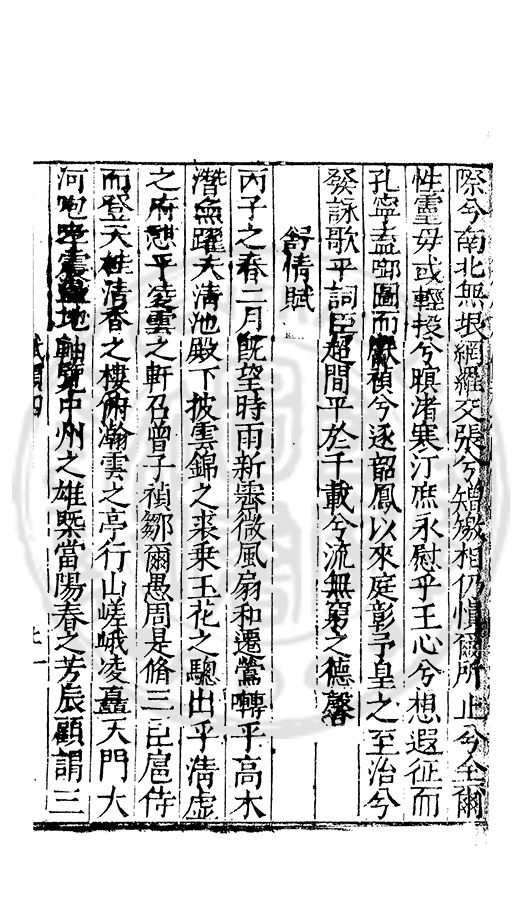 際兮南北無垠網羅交張兮矰繳相仍慎爾所止兮全爾
性靈毋或輕投兮暝渚寒汀庶永慰乎王心兮想遐征而
孔寧盍啣圖而獻禎兮逐韶鳳以來庭彰予皇之至治兮
發詠歌乎詞臣超間平於千載兮流無窮之德馨
舒情賦
丙子之春二月既望時雨新霽微風扇和遷鶯囀乎高木
潛魚躍天清池殿下披雲錦之裘乗玉花之驄出乎清虛
之府憩乎凌雲之軒召曾子禎鄒爾愚周是脩三臣扈侍
而登天桂清香之樓俯瀚雲之亭行山嵯峨凌矗天門大
河咆哮震盪地軸覽中州之雄槩當陽春之芳辰顧謂三